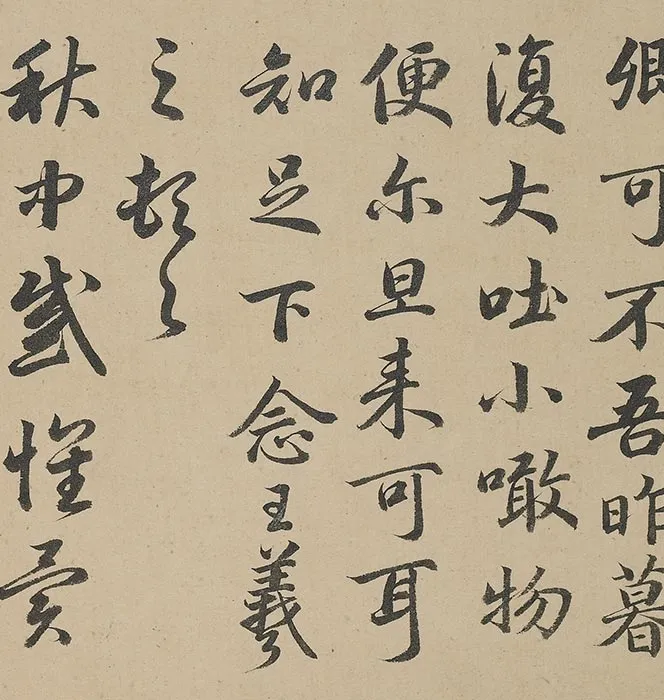 卿可不吾昨暮
復大吐小噉物
便尔旦来可耳
知足下念王羲
之頓首
秋中感懷異